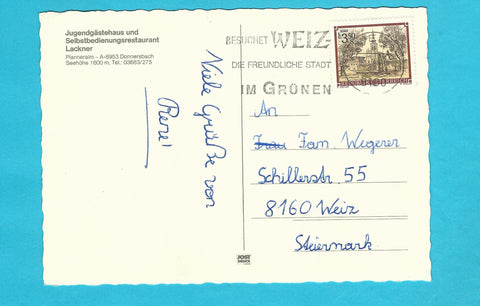 Jugendgästehaus und
Selbstbedienungsrestaurant
Lackner
Planneralm - A-8953 Donnersbach
Seehöhe 1600 m, Tel.: 03683/275
Viele Grüße von
Rene!
BESUCHET WEIZ-
DIE FREUNDLICHE STADT
IM GRÜNEN
An
Frau Fam. Wegerer
Schillerstr. 55
8160 Weiz
Steiermark
JOST